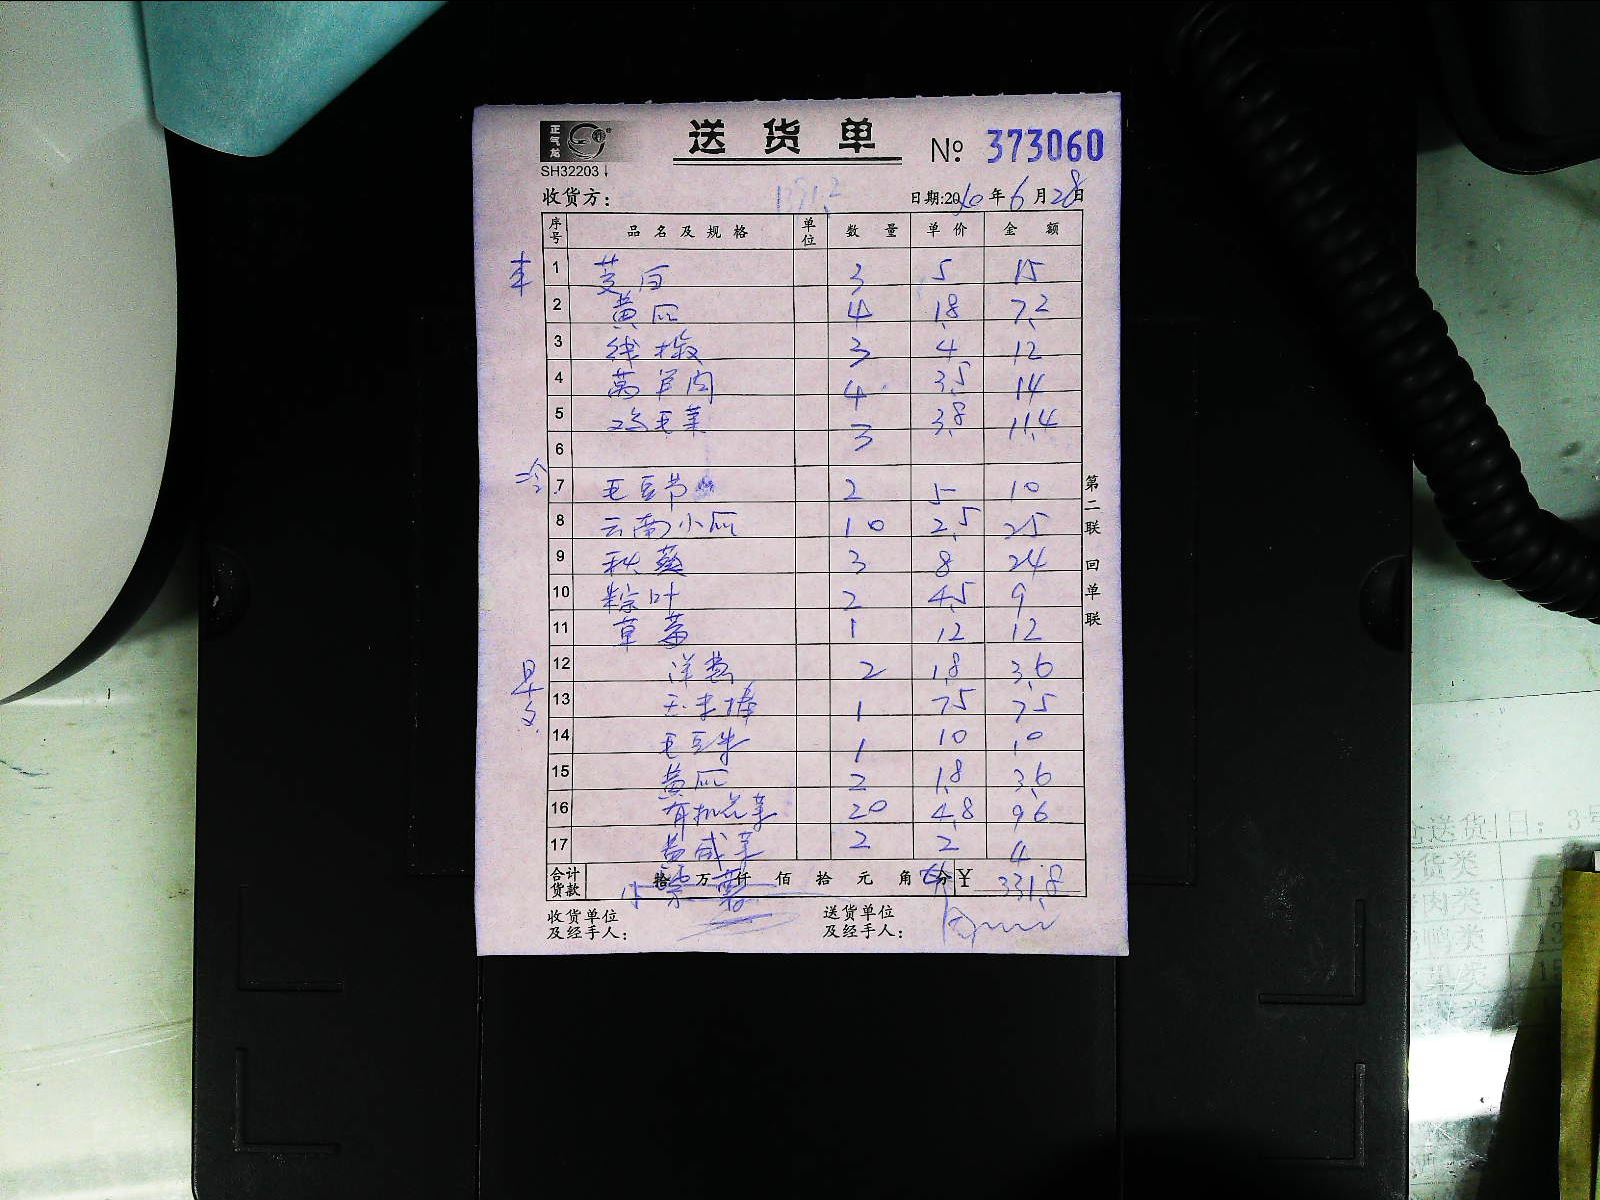 正气龙
送货单 № 373060
SH32203
收货方： 1391.2 日期:2010年6月28日
序号 品名及规格 单位 数量 单价 金额
1 茭白 3 5 15
2 黄瓜 4 1.8 7.2
3 线椒 3 4 12
4 莴笋肉 4 3.5 14
5 鸡毛菜 3 3.8 11.4
6
冷 7 毛豆节 2 5 10
8 云南小瓜 10 2.5 25
9 秋葵 3 8 24
10 粽叶 2 4.5 9
11 草莓 1 12 12
12 洋葱 2 1.8 3.6
早 13 玉米棒 1 75 75
14 毛豆米 1 10 10
15 黄瓜 2 1.8 3.6
16 有机花菜 20 4.8 96
17 黄咸菜 2 2 4
合计货款 拾 万 仟 佰 拾 元 角 分 ￥ 331.8
收货单位及经手人： 送货单位及经手人：
第二联 回单联
送货 日：3
货类
肉类 13
鸭类 13